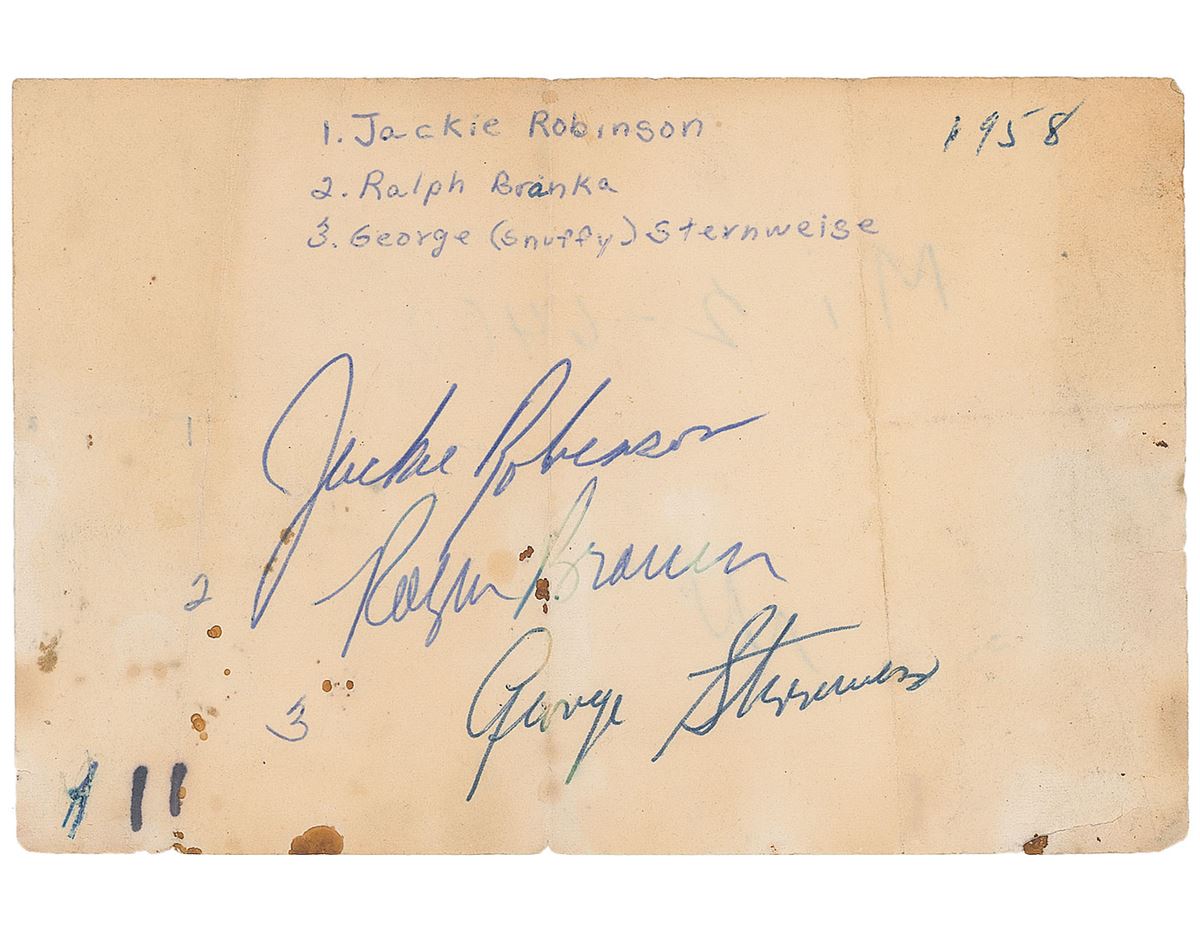 1. Jackie Robinson
1958
2. Ralph Branka
3. George (Snuffy) Sternweise
Jackie Robinson
2
Ralph
3
George
11